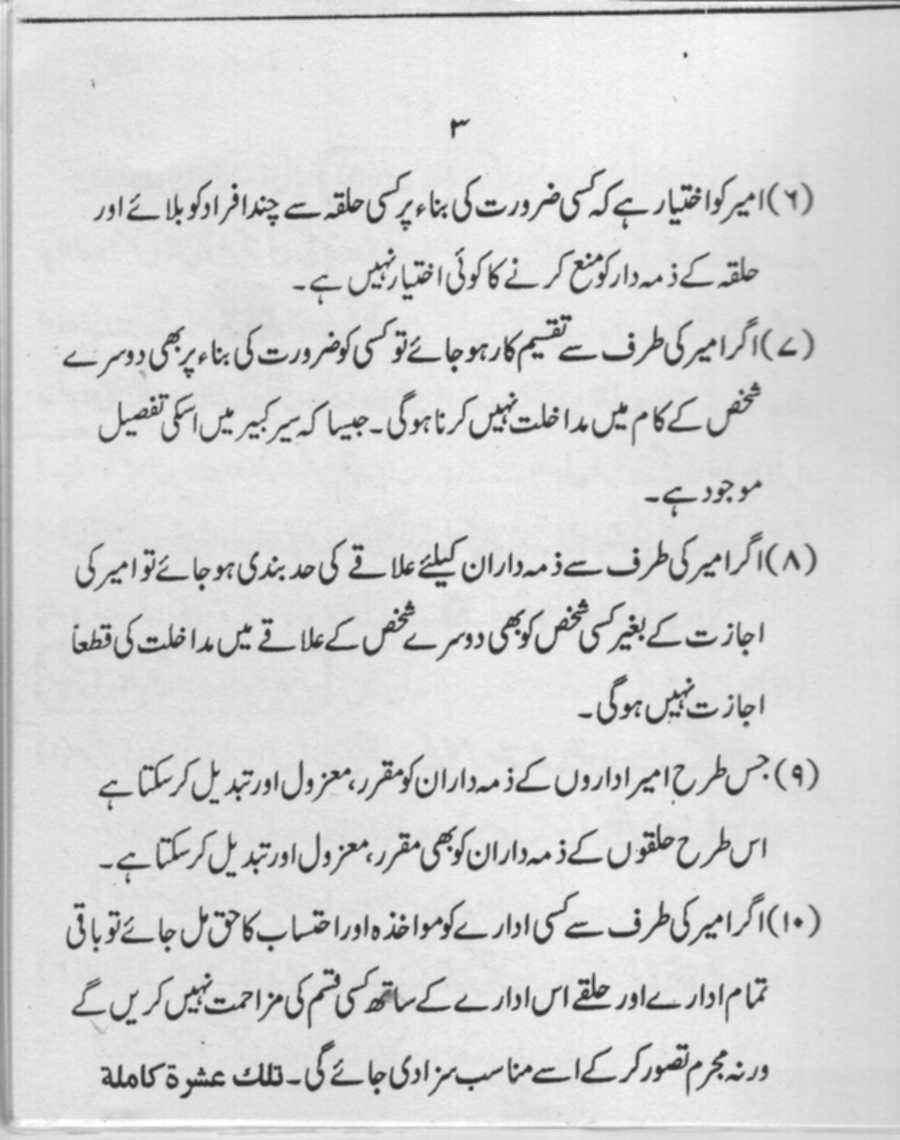 ۳
(۶) امیر کو اختیار ہے کہ کسی ضرورت کی بناء پر کسی حلقہ سے چند افراد کو بلائے اور
حلقہ کے ذمہ دار کو منع کرنے کا کوئی اختیار نہیں ہے۔
(۷) اگر امیر کی طرف سے تقسیم کار ہو جائے تو کسی کو ضرورت کی بناء پر بھی دوسرے
شخص کے کام میں مداخلت نہیں کرنا ہوگی۔ جیسا کہ سیر کبیر میں اسکی تفصیل
موجود ہے۔
(۸) اگر امیر کی طرف سے ذمہ داران کیلئے علاقے کی حد بندی ہو جائے تو امیر کی
اجازت کے بغیر کسی شخص کو بھی دوسرے شخص کے علاقے میں مداخلت کی قطعا
اجازت نہیں ہوگی۔
(۹) جس طرح امیر اداروں کے ذمہ داران کو مقرر، معزول اور تبدیل کر سکتا ہے
اس طرح حلقوں کے ذمہ داران کو بھی مقرر، معزول اور تبدیل کر سکتا ہے۔
(۱۰) اگر امیر کی طرف سے کسی ادارے کو مواخذہ اور احتساب کا حق مل جائے تو باقی
تمام ادارے اور حلقے اس ادارے کے ساتھ کسی قسم کی مزاحمت نہیں کریں گے
ورنہ مجرم تصور کر کے اسے مناسب سزا دی جائے گی۔ تلك عشرة كاملة